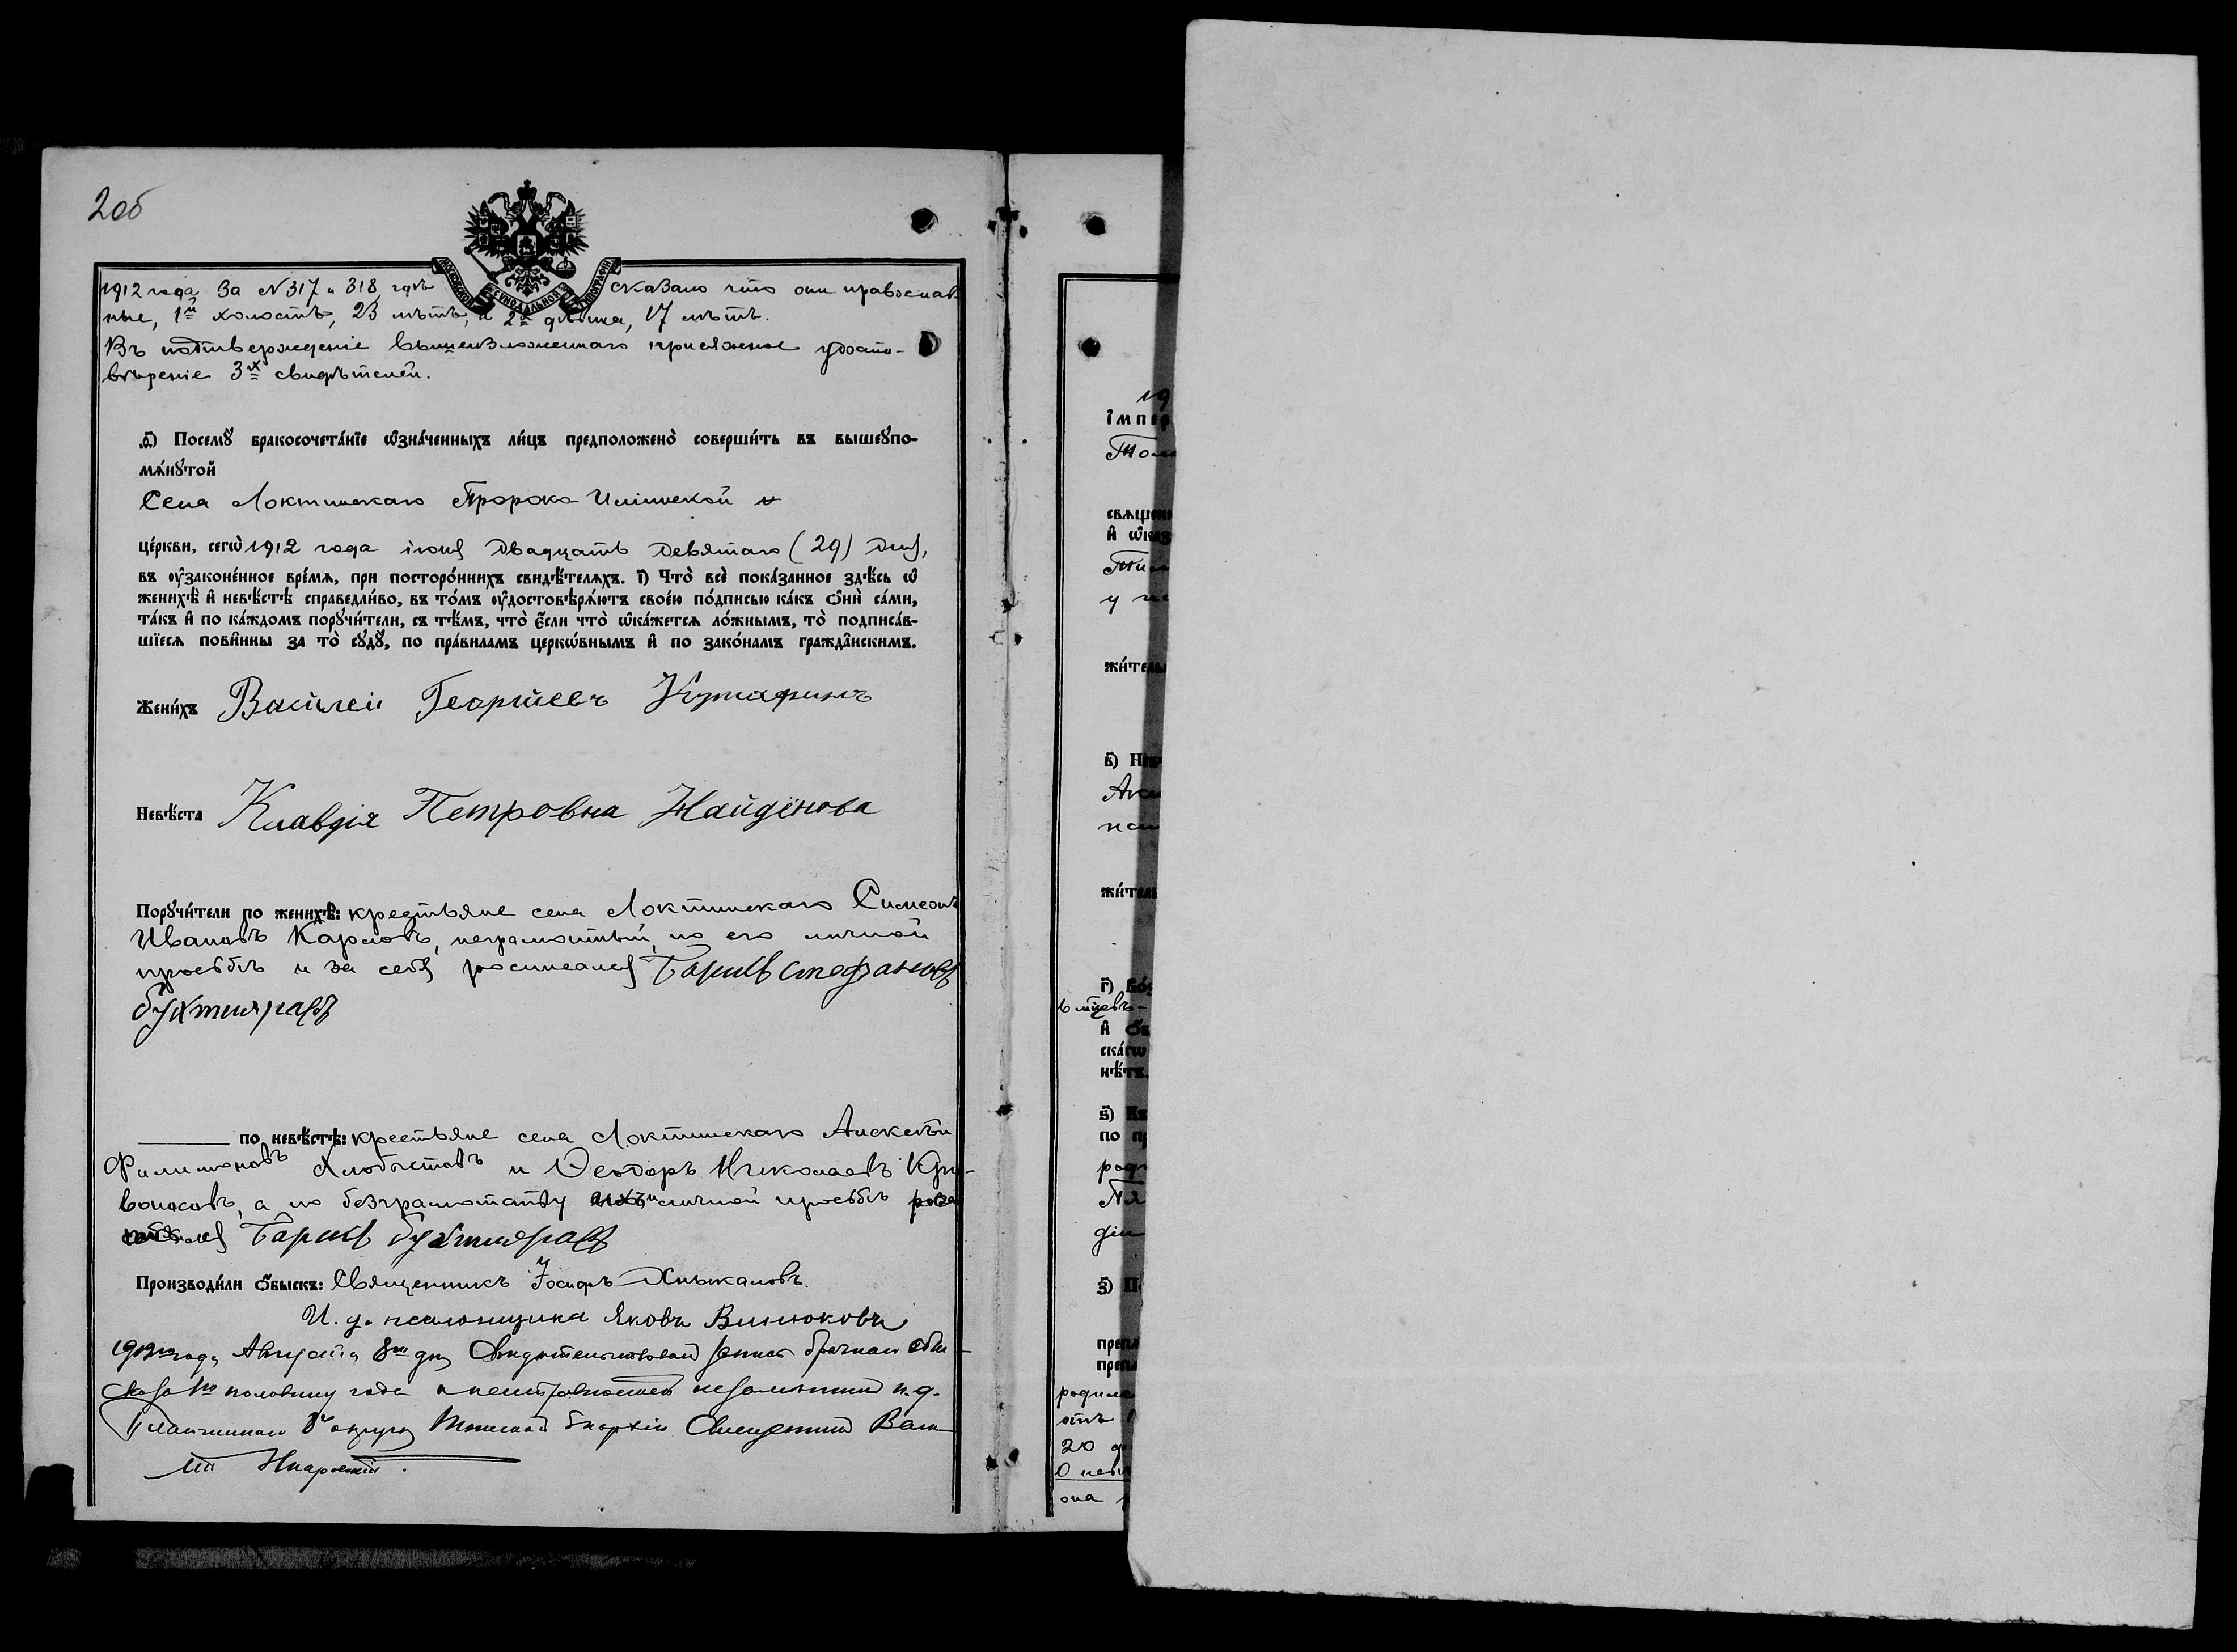 2об
МОСКОВСКОЙ СѴНОДАЛЬНОЙ ТИПОГРАФІИ
1912 года за №317 и 318, гдѣ сказано что они православ-
ные, 1й холостъ, 23 лѣтъ, а 2я дѣвица, 17 лѣтъ.
Въ подтвержденіе вышеизложеннаго присяжное удосто-
вѣреніе 3х свидѣтелей.
д҃і) Посемꙋ̀ бракосочета́нїе ѡ҆зна́ченныхъ ли́цъ предположено̀ соверши́ть въ вышеꙋпо-
мѧ́нꙋтой
Села Локтинскаго Пророко-Илiинской
це́ркви, сегѡ̀ 1912 года іюня двадцать девятаго (29) дня,
въ ᲂу҆законе́нное вре́мѧ, при посторо́ннихъ свидѣ́телѧхъ. і҃) Что̀ всѐ пока́занное здѣ́сь ѡ҆
женихѣ̀ и҆ невѣ́стѣ справедли́во, въ то́мъ ᲂу҆достовѣрѧ́ютъ свое́ю по́дписью ка́къ ѻ҆нѝ са́ми,
та́къ и҆ по ка́ждомъ порꙋчи́тели, съ тѣ́мъ, что̀ є҆́сли что̀ ѡ҆ка́жетсѧ ло́жнымъ, то̀ подписа́в-
шїесѧ пови́нны за то̀ сꙋдꙋ̀, по пра́виламъ церкѡ́внымъ и҆ по зако́намъ гражда̑нскимъ.
Жени́хъ Василеи Георгиевъ Кутафинъ
Невѣ́ста Клавдія Петровна Найдёнова
Порꙋчи́тели по женихѣ̀: крестьяне села Локтинскаго Симеонъ
Ивановъ Карповъ, неграмотный, по его личной
просьбѣ и за себя росписался Борисъ Стефановъ
бухтияровъ
по невѣ́стѣ: крестьяне села Локтинскаго
Филимоновъ Хлобыстовъ и Ѳеодоръ Николаевъ Кри-
воносовъ, а по безграмотству ихъ и личной просьбѣ
Борисъ бухтияровъ
Производи́ли ѻ҆́быскъ: Священникъ Іосифъ Хныкаловъ.
И. д. псаломщика Яковъ Винюковъ
1912 года Августа 8го дня Свидѣтельствовалъ запись брачнаго обы-
ска за 1ю половину года и неисправностей не замѣтилъ и.д.
Благочиннаго округа Томской Епархіи Священникъ Васи-
лій
19
і҆мпер
Том
свѧщен
и҆ ѡ҆каз
у
жи́тель
в҃) Не
Акс
жи́тель
г҃) Во́з
и҆ ѻ҆б
ска́гѡ
нѣ́тъ.
по п
род
діи
з҃) П
препѧ
препѧ
родил
отъ
20
О нев
она